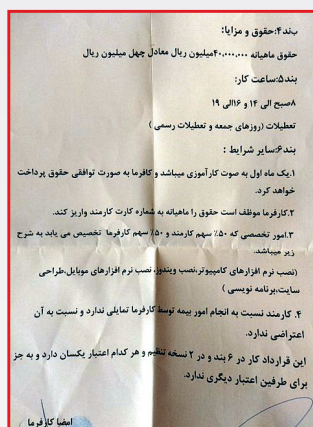 بند۴:حقوق و مزایا:
حقوق ماهیانه ۴۰,۰۰۰,۰۰۰میلیون ریال معادل چهل میلیون ریال
بند۵:ساعت کار:
۸صبح الی ۱۴ و ۱۶الی ۱۹
تعطیلات (روزهای جمعه و تعطیلات رسمی )
بند۶:سایر شرایط :
۱.یک ماه اول به صوت کارآموزی میباشد و کافرما به صورت توافقی حقوق پرداخت
خواهد کرد.
۲.کارفرما موظف است حقوق را ماهیانه به شماره کارت کارمند واریز کند.
۳.امور تخصصی که ۵۰٪ سهم کارمند و ۵۰٪ سهم کارفرما تخصیص می یابد به شرح
زیر میباشد.
(نصب نرم افزارهای کامپیوتر،نصب ویندوز،نصب نرم افزارهای موبایل،طراحی
سایت،برنامه نویسی )
۴. کارمند نسبت به انجام امور بیمه توسط کارفرما تمایلی ندارد و نسبت به آن
اعتراضی ندارد.
این قرارداد کار در ۶ بند و در ۲ نسخه تنظیم و هر کدام اعتبار یکسان دارد و به جز
برای طرفین اعتبار دیگری ندارد.
امضا کارفرما